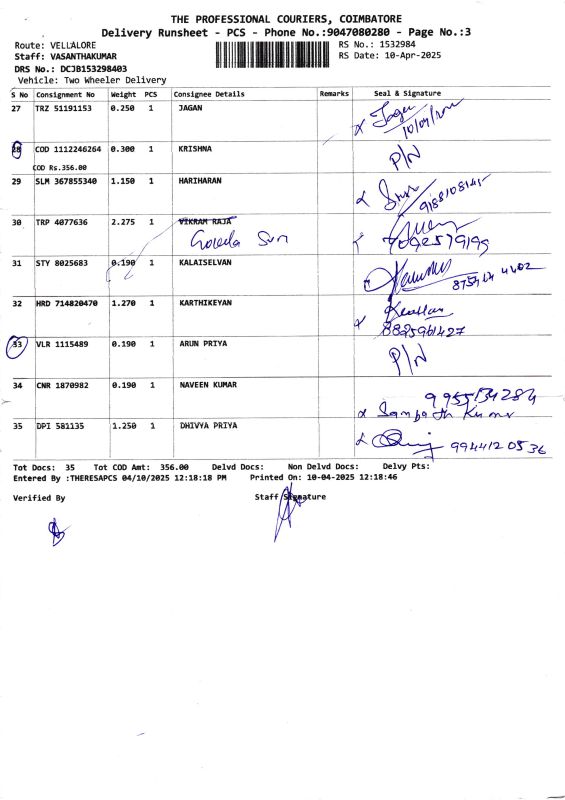 THE PROFESSIONAL COURIERS, COIMBATORE
Delivery Runsheet - PCS - Phone No.:9047080280 - Page No.:3
Route: VELLALORE
RS No.: 1532984
Staff: VASANTHAKUMAR
RS Date: 10-Apr-2025
DRS No.: DCJB153298403
Vehicle: Two Wheeler Delivery
S No Consignment No Weight PCS Consignee Details Remarks Seal & Signature
27 TRZ 51191153 0.250 1 JAGAN Jagan
28 COD 1112246264 0.300 1 KRISHNA P/N
COD Rs.356.00
29 SLM 367855340 1.150 1 HARIHARAN
30 TRP 4077636 2.275 1 VIKRAM RAJA
31 STY 8025683 0.190 1 KALAISELVAN
32 HRD 714820470 1.270 1 KARTHIKEYAN
33 VLR 1115489 0.190 1 ARUN PRIYA P/N
34 CNR 1870982 0.190 1 NAVEEN KUMAR
Sampath Kumar
35 DPI 581135 1.250 1 DHIVYA PRIYA 9944120536
Tot Docs: 35 Tot COD Amt: 356.00 Delvd Docs: Non Delvd Docs: Delvy Pts:
Entered By :THERESAPCS 04/10/2025 12:18:18 PM Printed On: 10-04-2025 12:18:46
Verified By Staff Signature